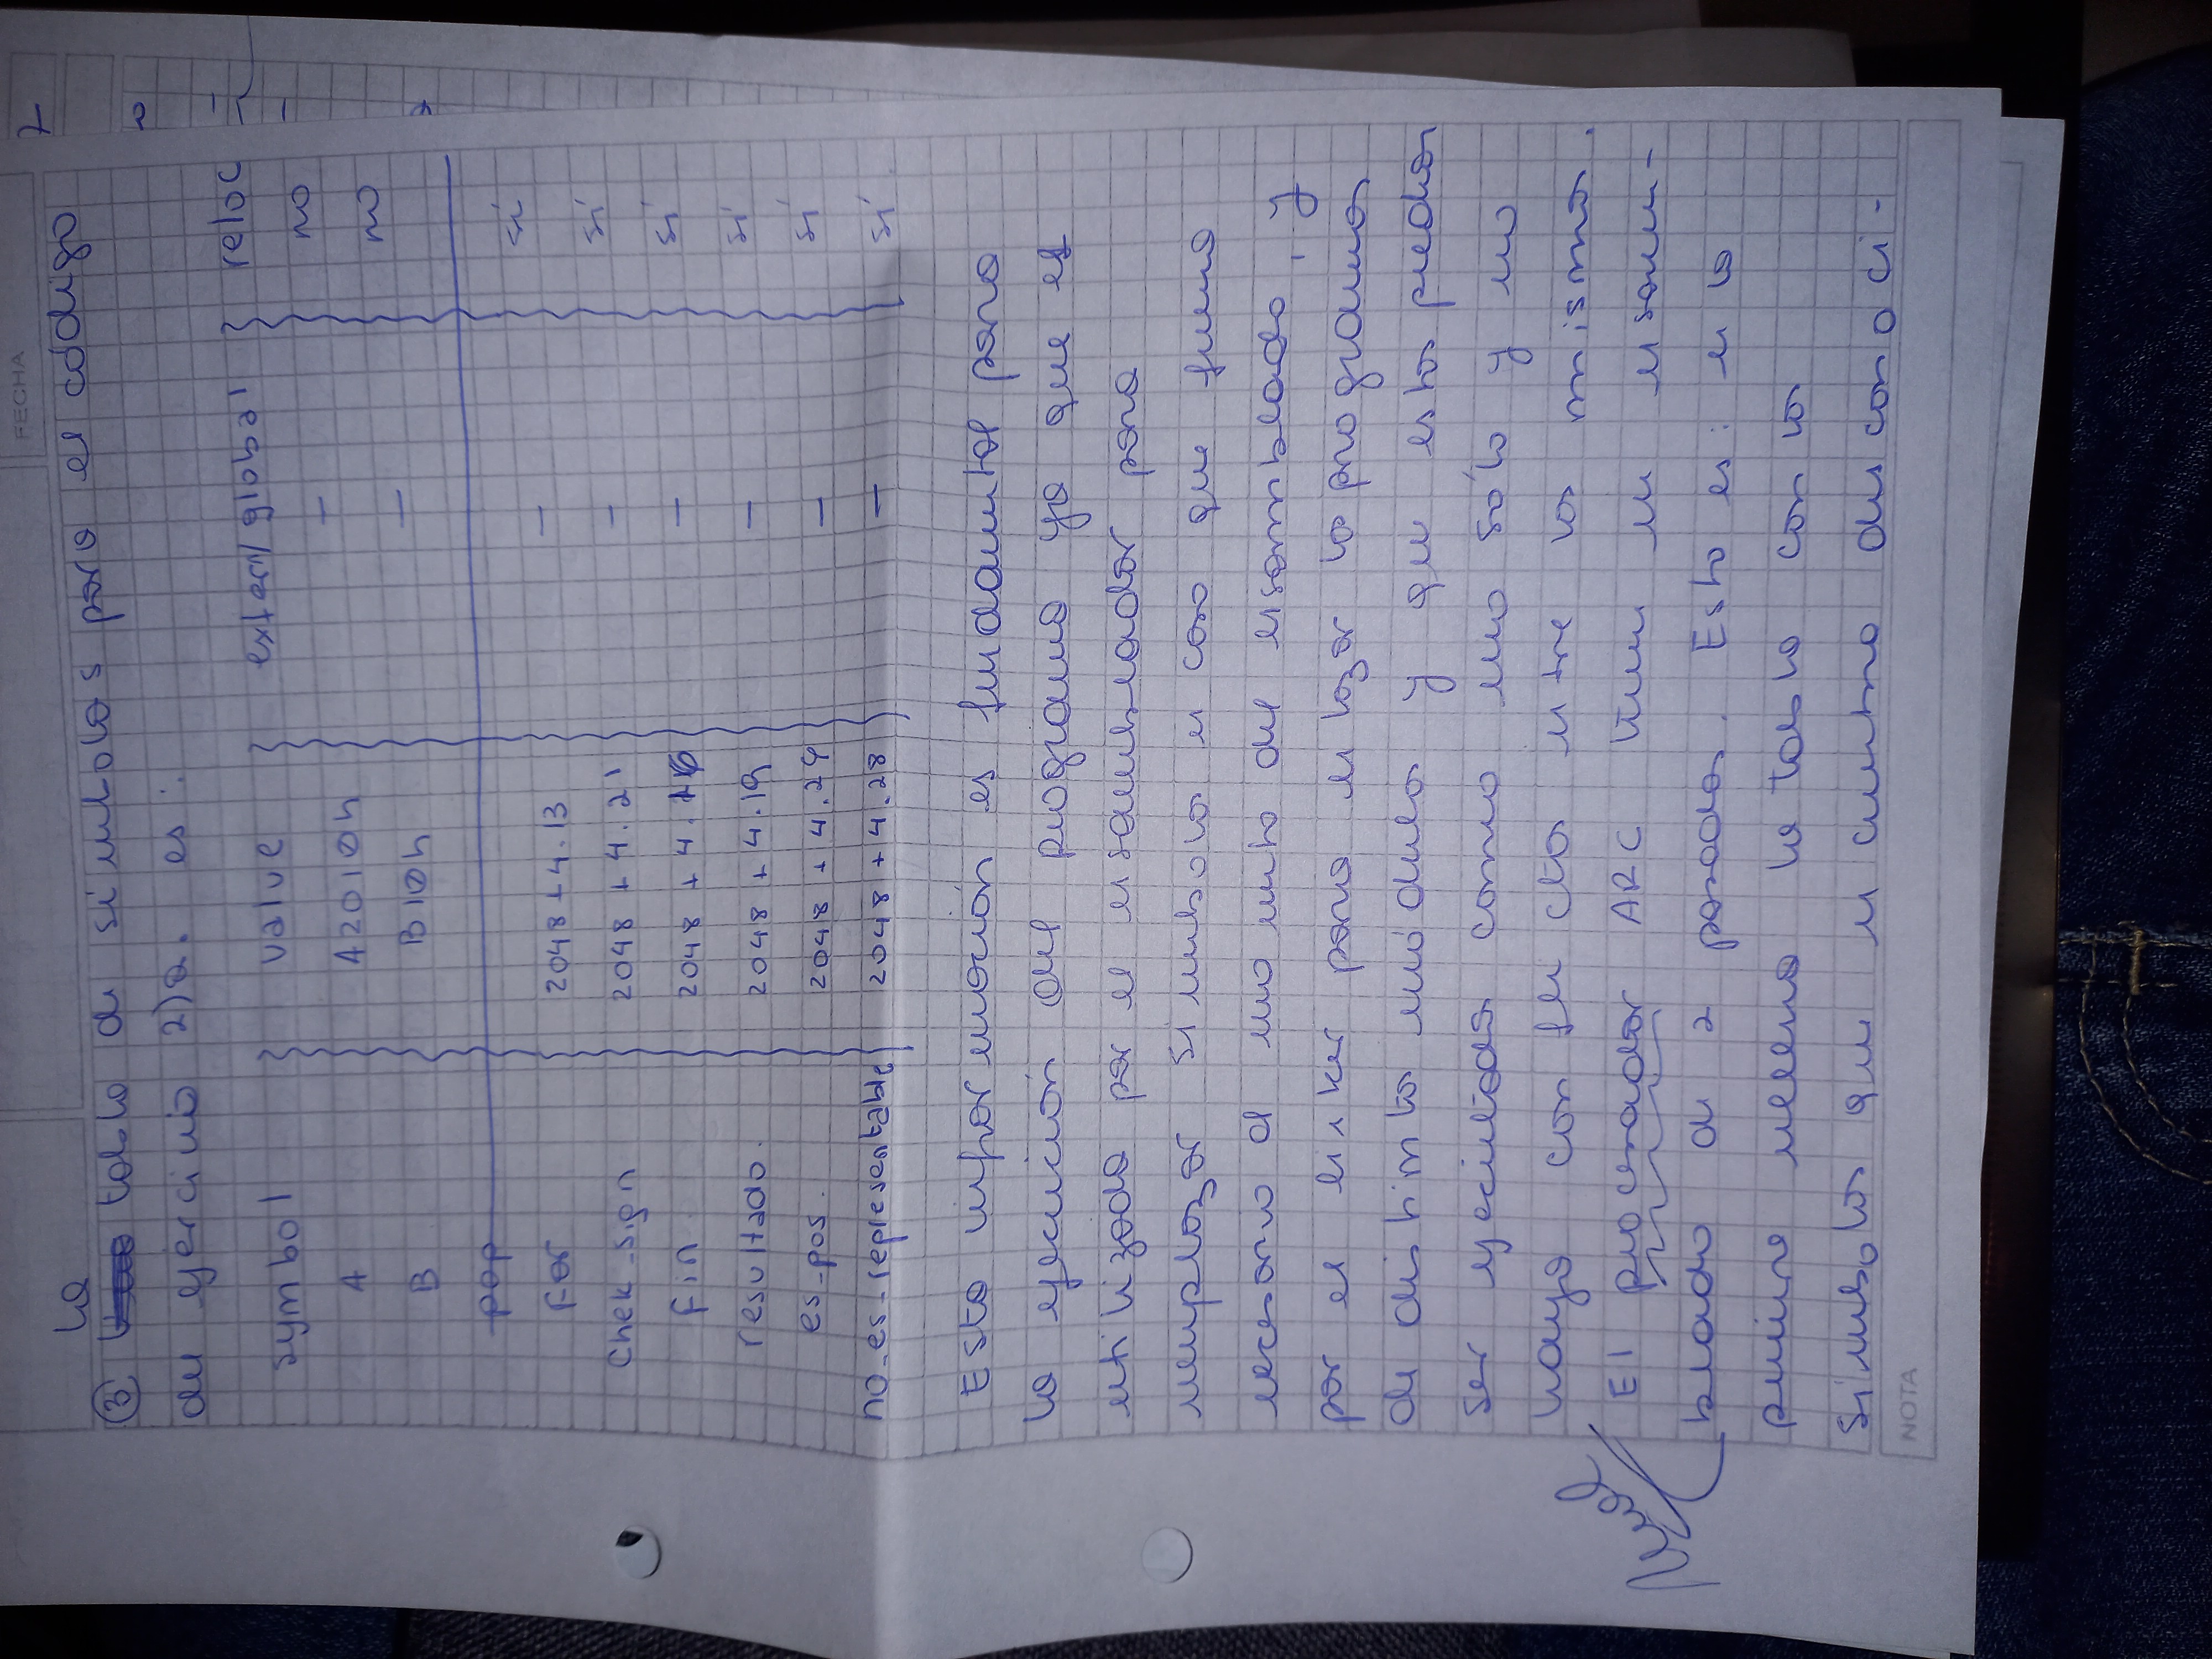 FECHA
7
La
③ tabla de símbolos para el código
del ejercicio 2)a. es:
symbol value extern/global reloc
A A2010h — no
B B10h — no
pop
for 2048 + 4.13 — sí
chek_sign 2048 + 4.21 — sí
fin 2048 + 4.16 — sí
resultado. 2048 + 4.19 — sí
es_pos. 2048 + 4.24 — sí
no_es_representable 2048 + 4.28 — sí
Esta información es fundamental para
la ejecución del programa ya que es
utilizada por el ensamblador para
reemplazar símbolos en caso que fuera
necesario al momento del ensamblado, y
por el linker para enlazar los programas
de distintos módulos y que estos puedan
ser ejecutados como uno sólo y no
haya conflictos entre los mismos.
El procesador ARC tiene un ensam-
blado de 2 pasadas. Esto es: en la
primera rellena la tabla con los
símbolos que encuentra desconoci-
NOTA